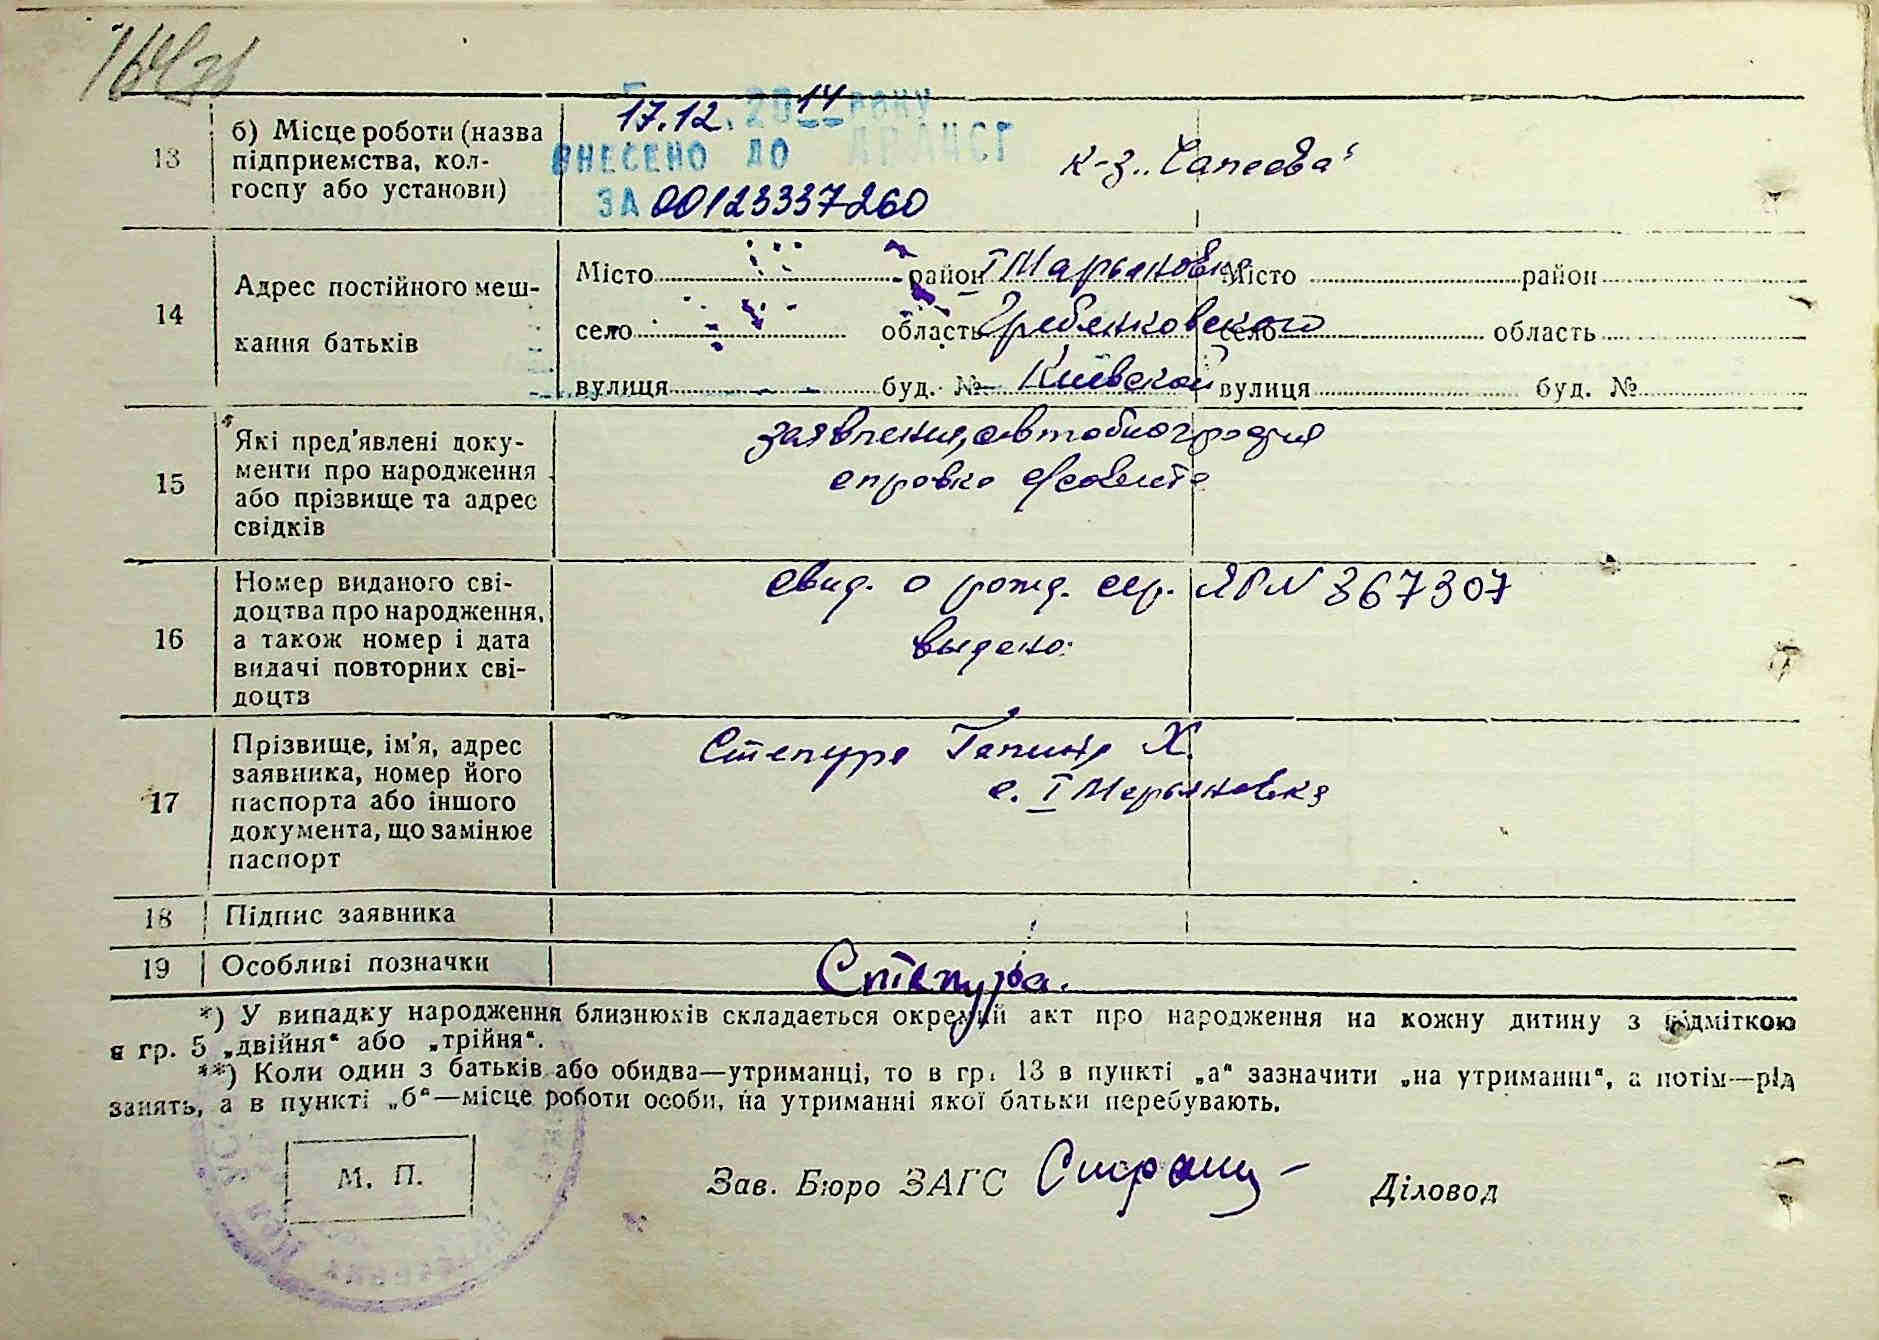 13
б) Місце роботи (назва
підприємства, кол-
госпу або установи)
17.12. 2014 року
ВНЕСЕНО ДО ДРАЦСГ
ЗА 00123337260
к-з „Чапаева"
14
Адрес постійного меш-
кання батьків
Місто район I Марьяновка
село область Гребенковского
вулиця буд. № Київской
Місто район
село область
вулиця буд. №
15
Які пред'явлені доку-
менти про народження
або прізвище та адрес
свідків
заявления, автобиография
справка с/совета
16
Номер виданого сві-
доцтва про народження,
а також номер і дата
видачі повторних сві-
доцтв
свид. о рожд. сер. ЯР N 367307
выдано.
17
Прізвище, ім'я, адрес
заявника, номер його
паспорта або іншого
документа, що замінює
паспорт
Степура Х.
с. I Марьяновка
18
Підпис заявника
19
Особливі позначки
Степура.
*) У випадку народження близнюків складається окремий акт про народження на кожну дитину з відміткою
в гр. 5 „двійня" або „трійня".
**) Коли один з батьків або обидва—утриманці, то в гр. 13 в пункті „а" зазначити „на утриманні", а потім—рід
занять, а в пункті „б"—місце роботи особи, на утриманні якої батьки перебувають.
М. П.
Зав. Бюро ЗАГС
Діловод